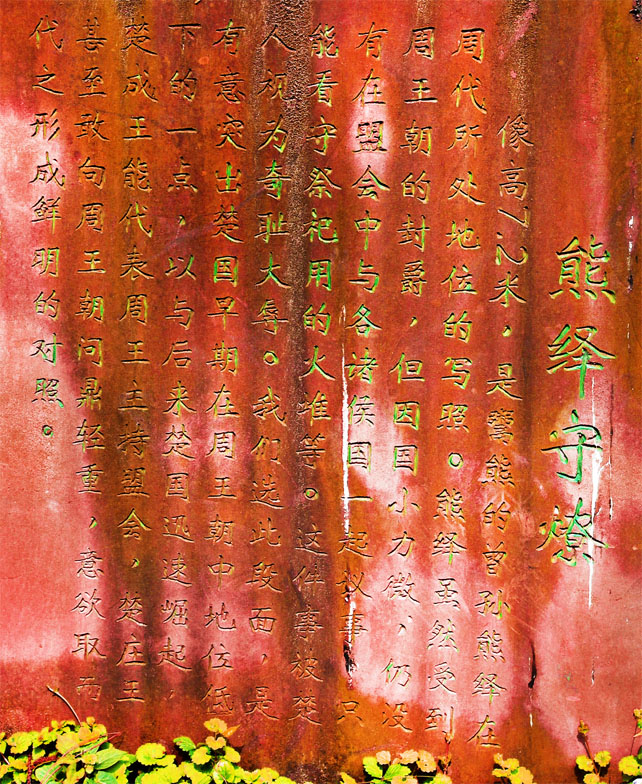 熊绎守燎
像高7.2米，是鬻熊的曾孙熊绎在
周代所处地位的写照。熊绎虽然受到
周王朝的封爵，但因国小力微，仍没
有在盟会中与各诸侯国一起议事 只
能看守祭祀用的火堆等。这件事被楚
人视为奇耻大辱。我们选此段面，是
有意突出楚国早期在周王朝中地位低
下的一点，以与后来楚国迅速崛起，
楚成王能代表周王主持盟会，楚庄王
甚至敢向周王朝问鼎轻重，意欲取而
代之形成鲜明的对照。